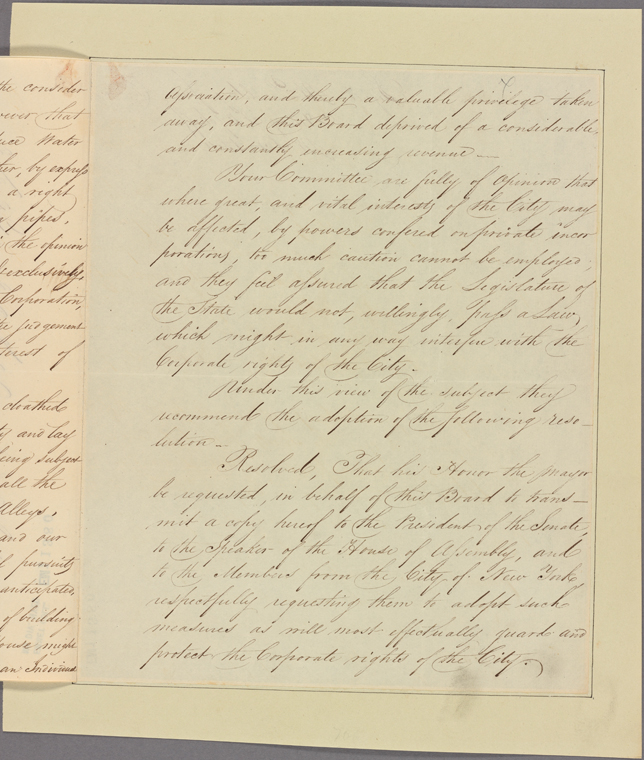 the consider
ever that
Water
by express
a right
pipes.
the opinion
exclusively,
Corporation,
judgement
terest of
cloathed
and lay
being subject
all the
Alleys,
and our
pursuits
anticipated,
of building
house might
an Individual
and thereby a valuable privilege taken
away, and this Board deprived of a considerable
and constantly increasing revenue —
Your Committee are fully of opinion that
where great, and vital interests of the City may
be affected, by powers confered on private incor
porations, too much caution cannot be employed,
and they feel assured that the Legislature of
the State would not, willingly, pass a Law,
which might in any way interfere with the
Corporate rights of the City.
Under this view of the subject they
recommend the adoption of the following reso-
lution —
Resolved, That his Honor the Mayor
be requested, in behalf of this Board to trans-
mit a copy hereof to the President of the Senate,
to the Speaker of the House of Assembly, and
to the Members from the City of New York,
respectfully requesting them to adopt such
measures as will most effectually guard and
protect the Corporate rights of the City.